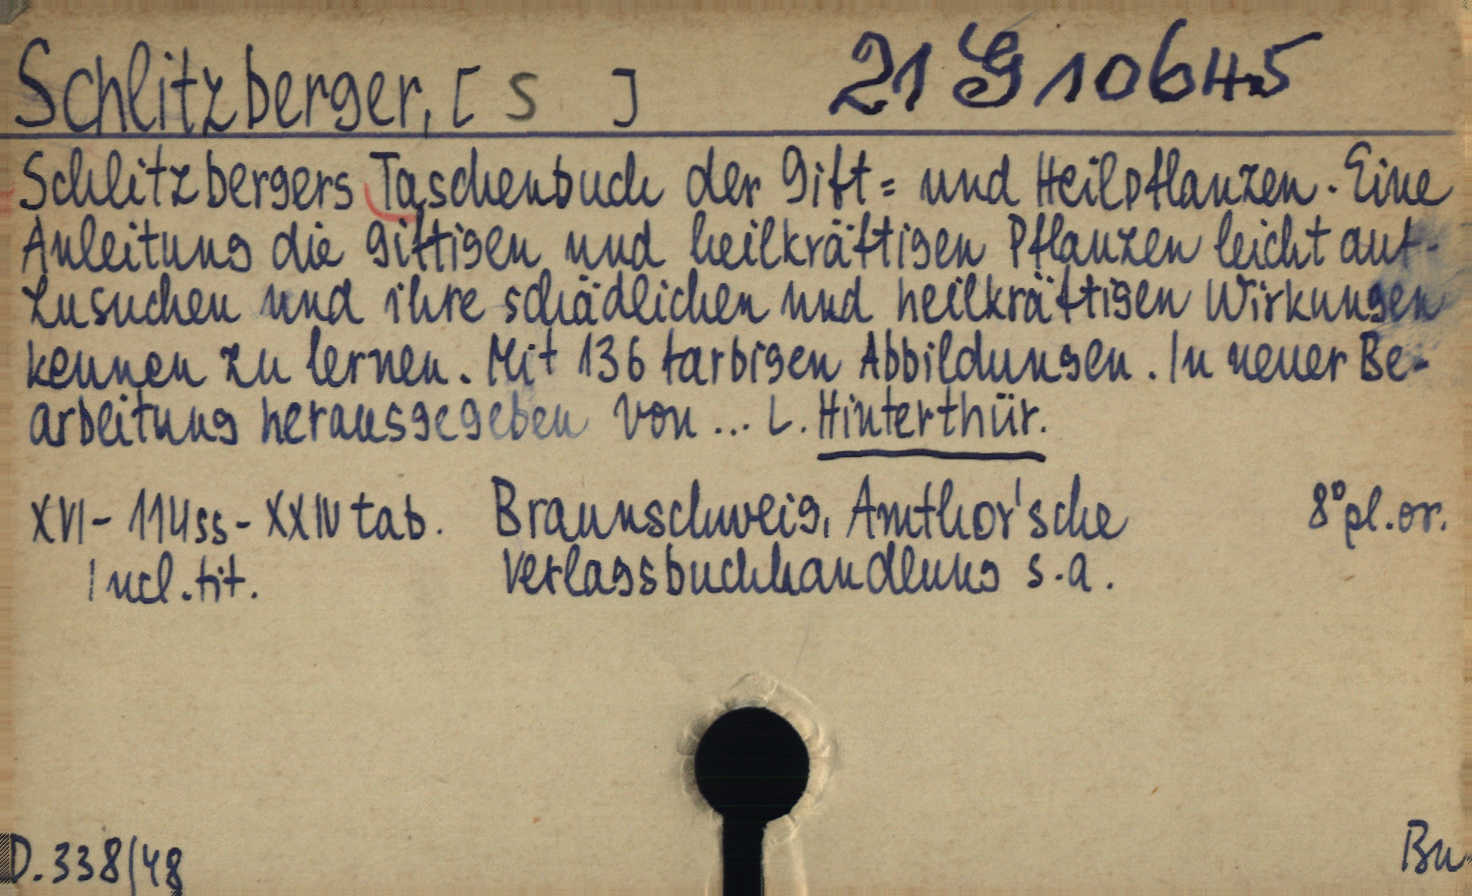 Schlitzberger, [ S ] 21 G 10645
Schlitzbergers Taschenbuch der Gift= und Heilpflanzen. Eine
Anleitung die giftigen und heilkräftigen Pflanzen leicht auf-
zusuchen und ihre schädlichen und heilkräftigen Wirkungen
kennen zu lernen. Mit 136 farbigen Abbildungen. In neuer Be-
arbeitung herausgegeben von ... L. Hinterthür.
XVI - 114 ss - XXIV tab. Braunschweig, Amthor'sche 8° pl. or.
Incl. tit. Verlagsbuchhandlung s.a.
D. 338/48 Bu